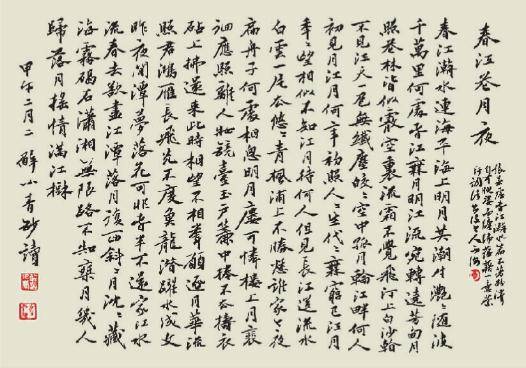 春江花月夜
春江潮水連海平海上明月共潮生灧々隨波
千萬里何處春江無月明江流宛轉遶芳甸月
照花林皆似霰空裏流霜不覺飛汀上白沙看
不見江天一色無纖塵皎々空中孤月輪江畔何人
初見月江月何年初照人々生代々無窮已江月
年々望相似不知江月待何人但見長江送流水
白雲一片去悠々青楓浦上不勝愁誰家今夜
扁舟子何處相思明月樓可憐樓上月裵
徊應照離人妝鏡臺玉戶簾中捲不去擣衣
砧上拂還來此時相望不相聞願逐月華流
照君鴻雁長飛光不度魚龍潛躍水成文
昨夜閒潭夢落花可憐春半不還家江水
流春去欲盡江潭落月復西斜々月沈々藏
海霧碣石瀟湘無限路不知乘月幾人
歸落月搖情滿江樹
甲午二月二 解小青抄讀